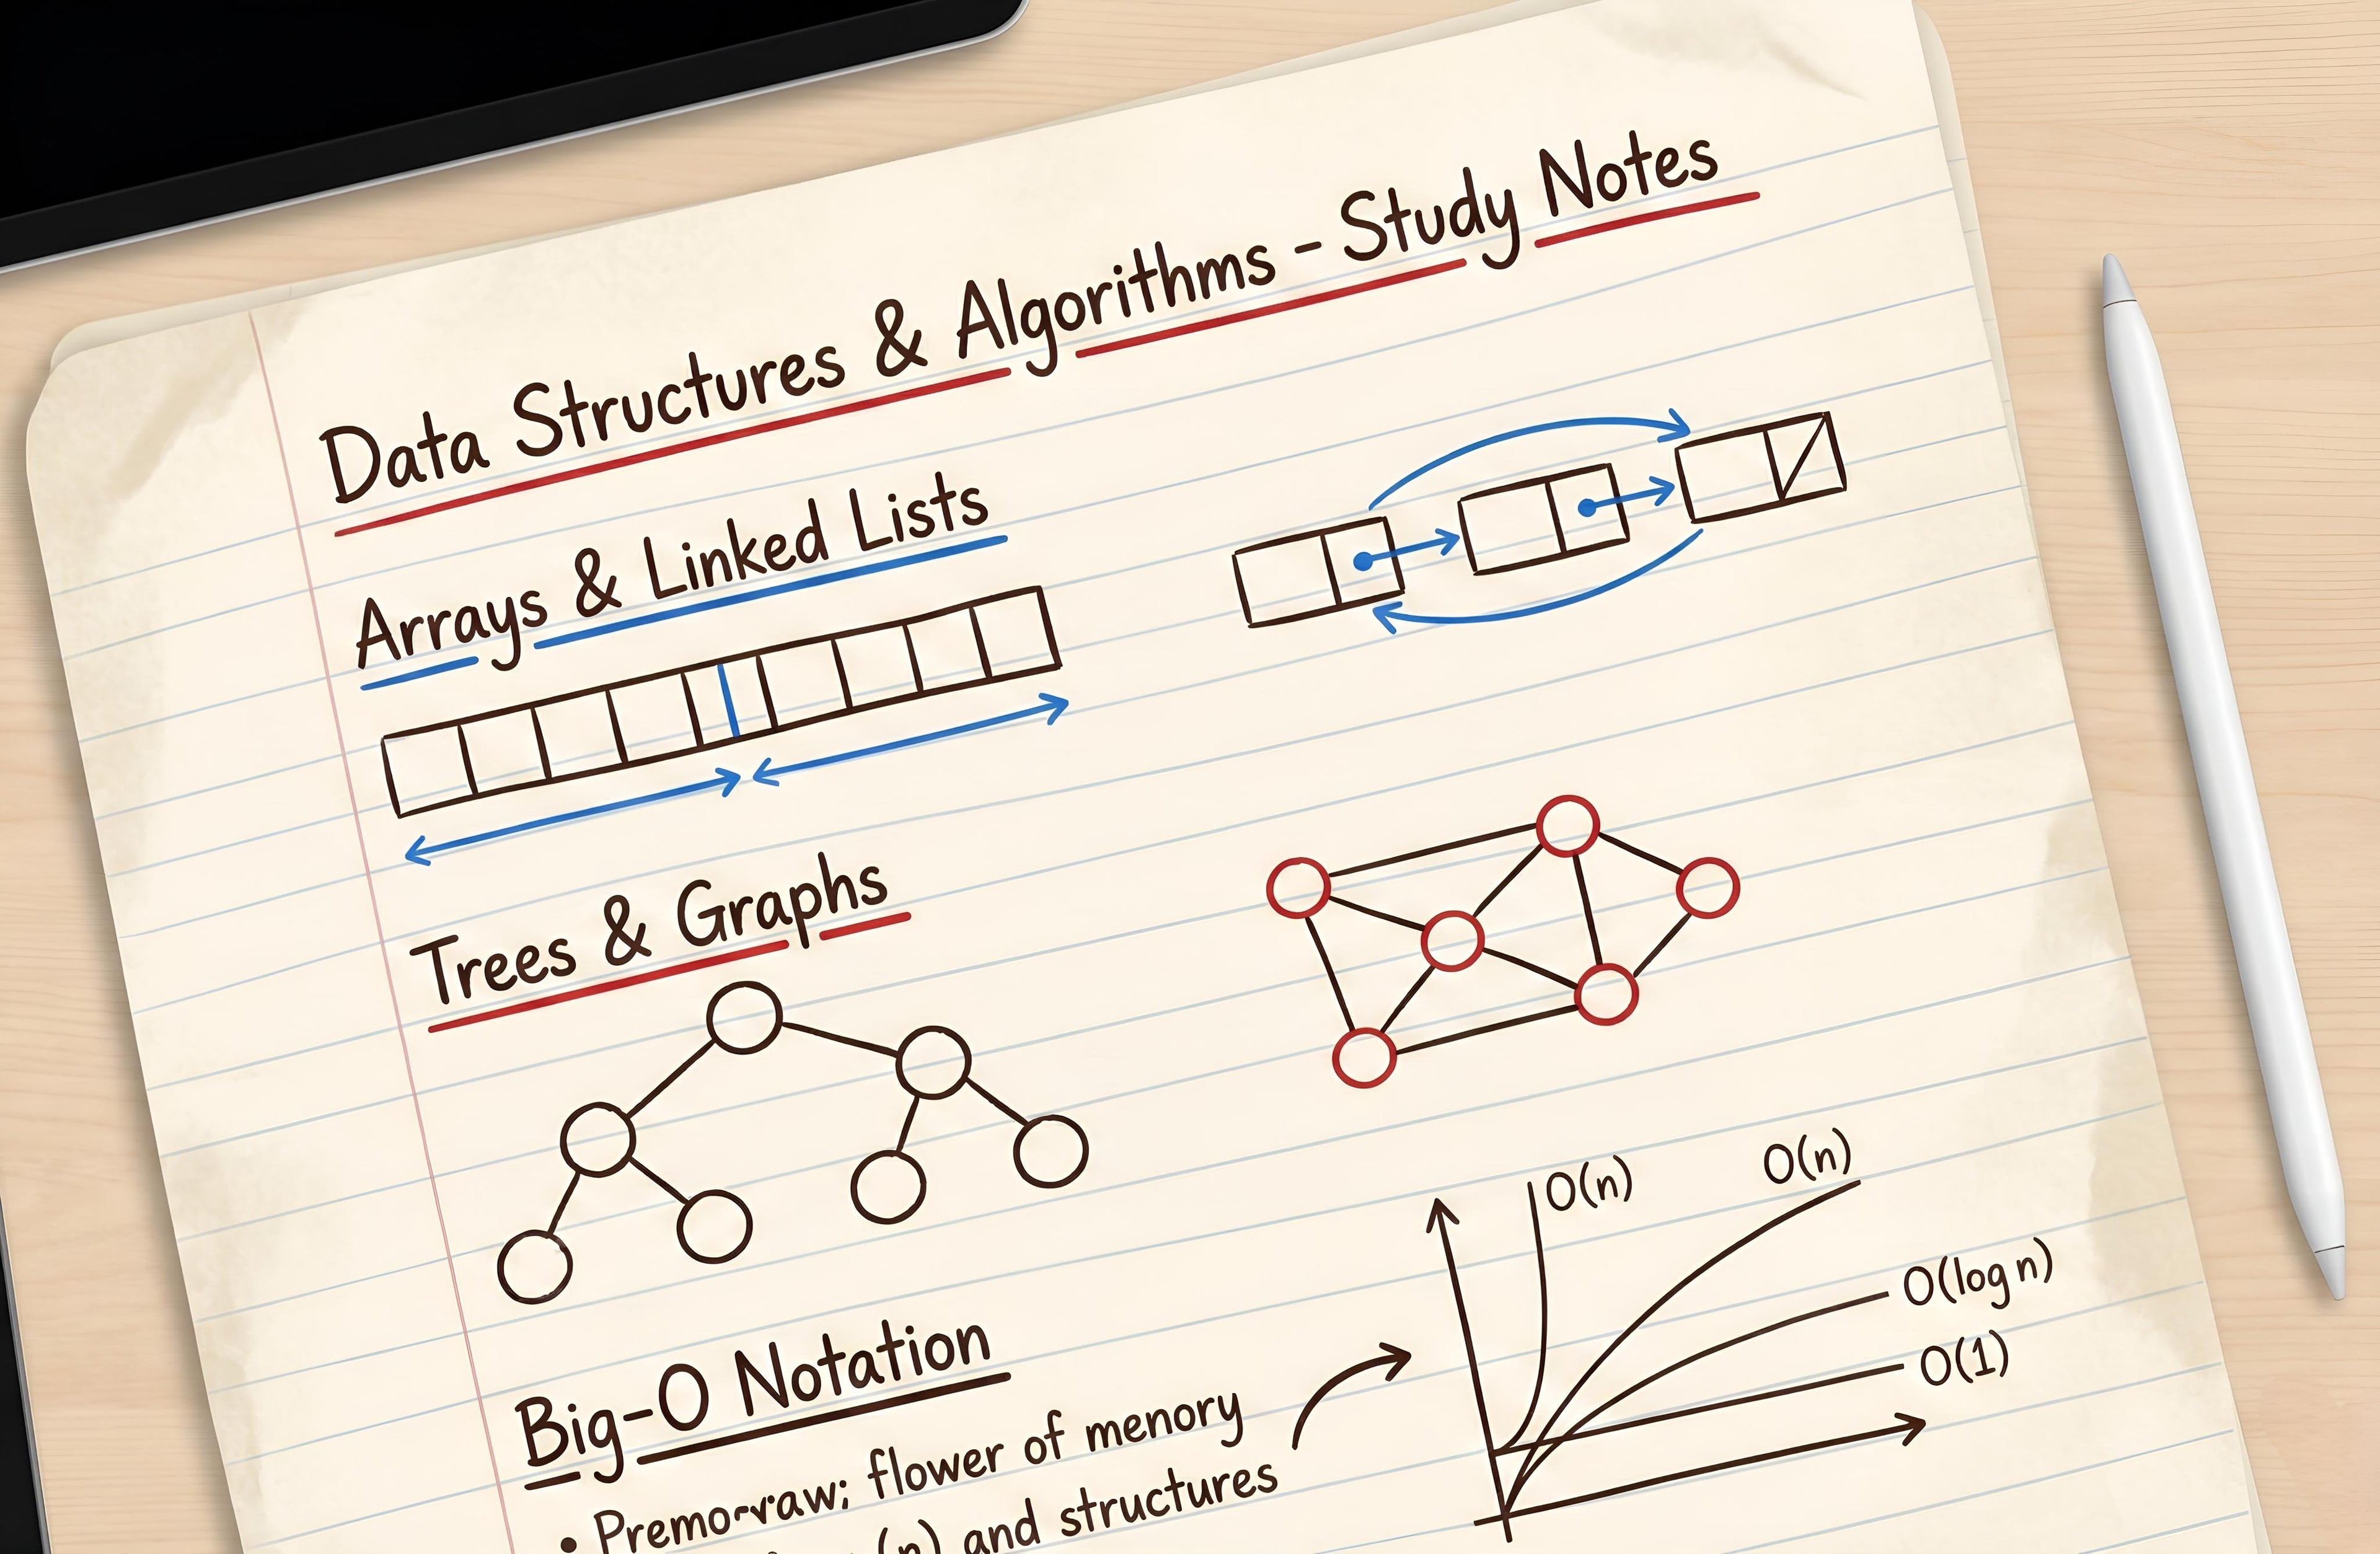 Data Structures & Algorithms - Study Notes
Arrays & Linked Lists
Trees & Graphs
O(n)
O(n)
O(log n)
O(1)
Big-O Notation
• Premo-raw; flower of menory
(n) and structures